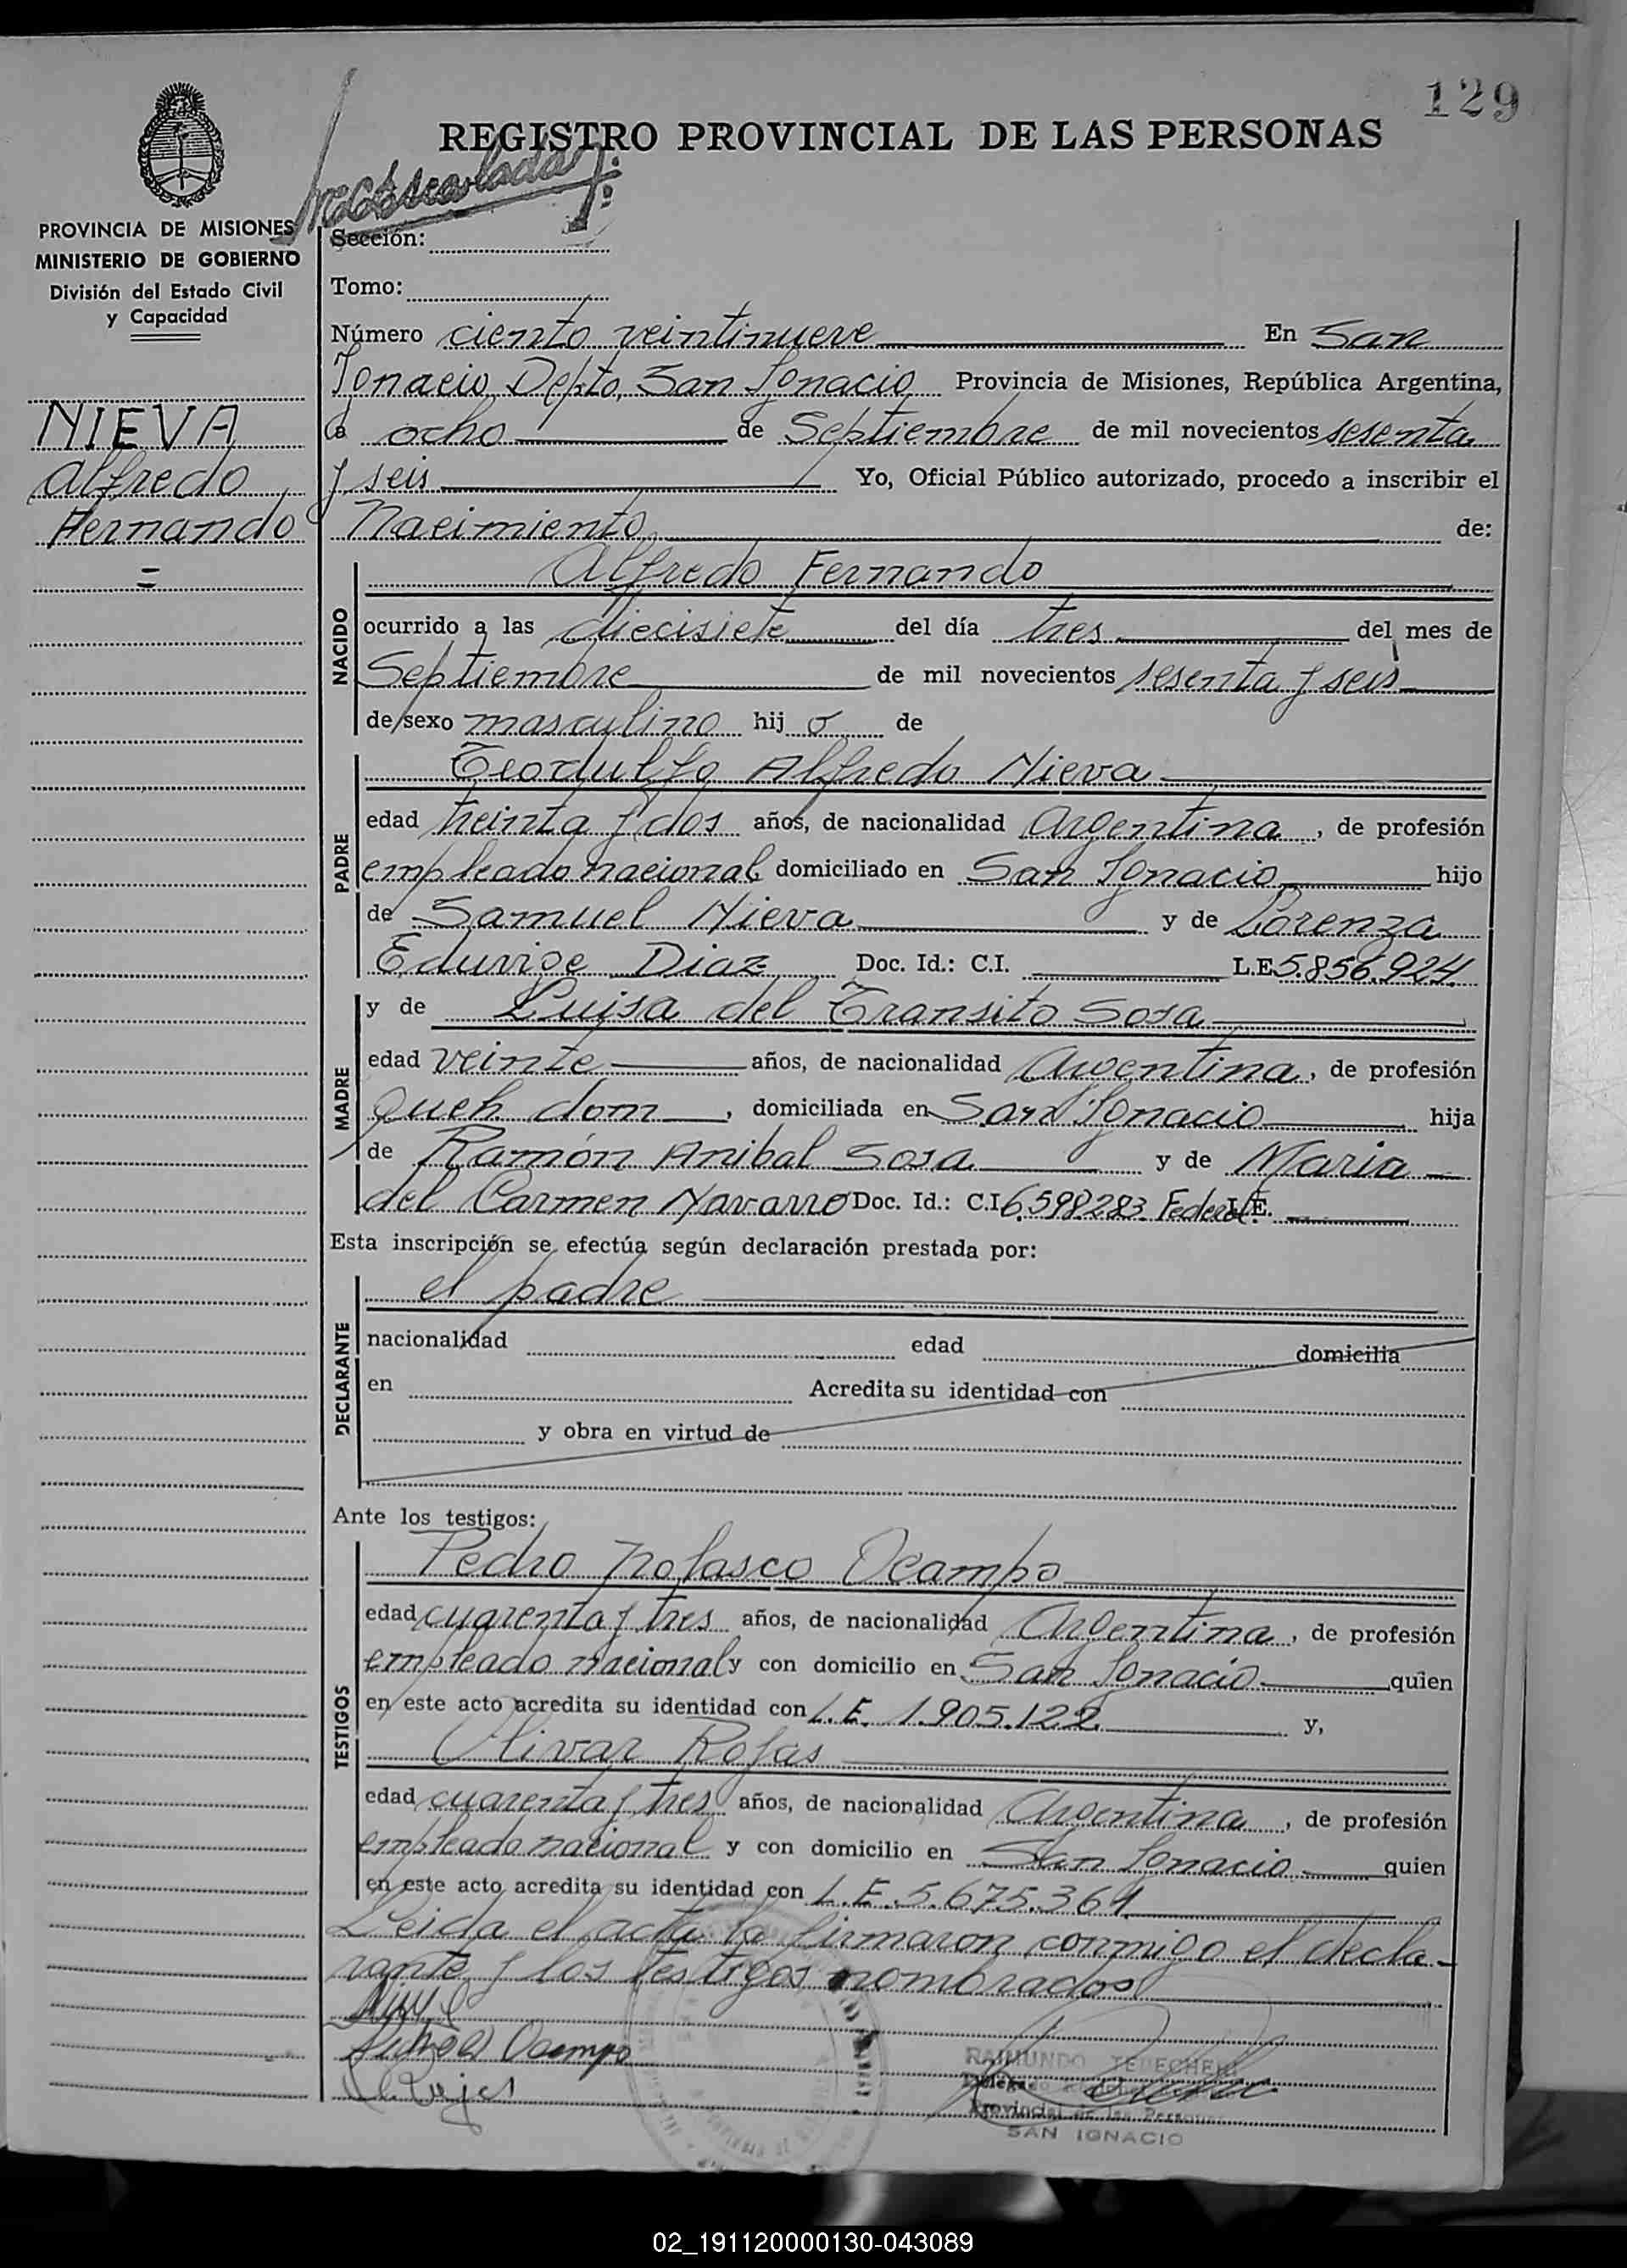 129
REGISTRO PROVINCIAL DE LAS PERSONAS
PROVINCIA DE MISIONES
MINISTERIO DE GOBIERNO
División del Estado Civil
y Capacidad
NIEVA
Alfredo
Hernando
=
Sección:
Tomo:
Número ciento veintinueve En San
Ignacio, Depto, San Ignacio Provincia de Misiones, República Argentina,
a ocho de Septiembre de mil novecientos sesenta
y seis Yo, Oficial Público autorizado, procedo a inscribir el
Nacimiento de:
NACIDO
Alfredo Fernando
ocurrido a las diecisiete del día tres del mes de
Septiembre de mil novecientos sesenta y seis
de sexo masculino hij o de
PADRE
Teodulfo Alfredo Nieva
edad treinta y dos años, de nacionalidad Argentina, de profesión
empleado nacional domiciliado en San Ignacio hijo
de Samuel Nieva y de Lorenza
Eduvige Diaz Doc. Id.: C.I. L.E 5.856.924
MADRE
y de Luisa del Transito Sosa
edad veinte años, de nacionalidad Argentina, de profesión
queh dom, domiciliada en San Ignacio hija
de Ramón Anibal Sosa y de Maria
del Carmen Navarro Doc. Id.: C.I 6.598283 Federal L.E.
Esta inscripción se efectúa según declaración prestada por:
DECLARANTE
el padre
nacionalidad edad domicilia
en Acredita su identidad con
y obra en virtud de
Ante los testigos:
TESTIGOS
Pedro Nolasco Ocampo
edad cuarenta y tres años, de nacionalidad Argentina, de profesión
empleado nacional y con domicilio en San Ignacio quien
en este acto acredita su identidad con L.E. 1.905.122 y,
Olivar Rojas
edad cuarenta y tres años, de nacionalidad Argentina, de profesión
empleado nacional y con domicilio en San Ignacio quien
en este acto acredita su identidad con L.E. 5.675.361
Leida el acta la firmaron conmigo el decla-
rante y los testigos nombrados
Ocampo
RAIMUNDO
Provincial de las Personas
SAN IGNACIO
02_191120000130-043089